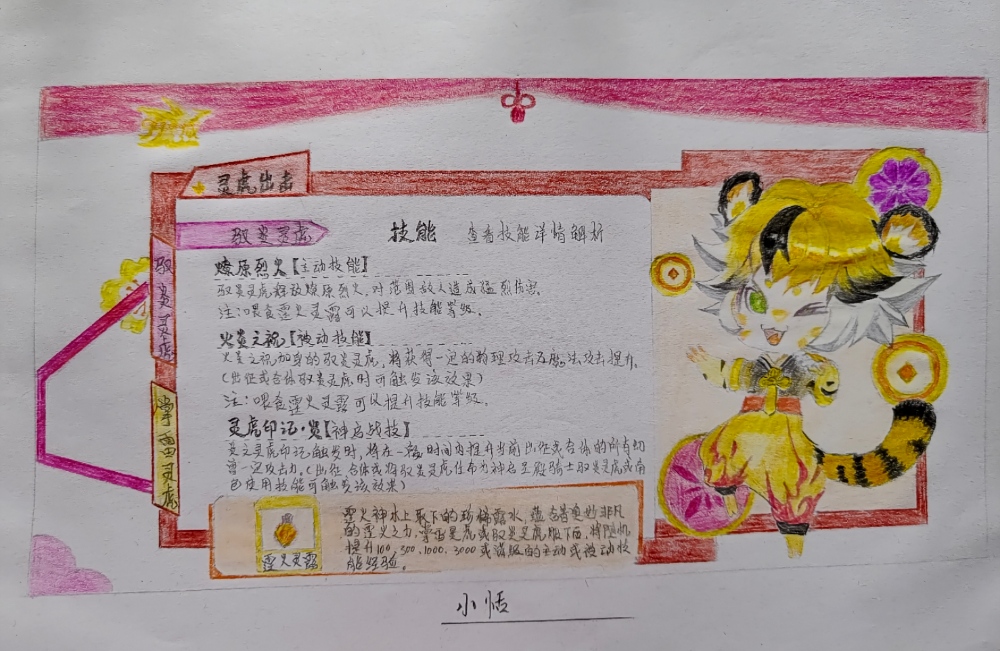 灵虎出击
驭炎灵虎
技能 查看技能详情解析
驭炎灵虎
掌雷灵虎
燎原烈火【主动技能】
驭炎灵虎释放燎原烈火,对范围敌人造成猛烈伤害
注:喂食霊火灵露可以提升技能等级。
火炎之祝【被动技能】
火炎之祝加身的驭炎灵虎,将获得一定的物理攻击及魔法攻击提升。
(出征或合体驭炎灵虎时可触发该效果)
注:喂食霊火灵露可以提升技能等级。
灵虎印记·炎【神启战技】
炎之灵虎印记触发时,将在一段时间内提升当前出征或合体的所有幻
兽一定攻击力。(出征、合体或将驭炎灵虎任命为神启圣殿骑士驭炎灵虎或角
色使用技能可触发该效果)
霊火灵露
霊火神木上取下的珍稀露水,蕴含着奥妙非凡
的霊火之力,掌雷灵虎或驭炎灵虎服下后,将随机
提升100,300,1000,3000或满级的主动或被动技
能经验。
小恬